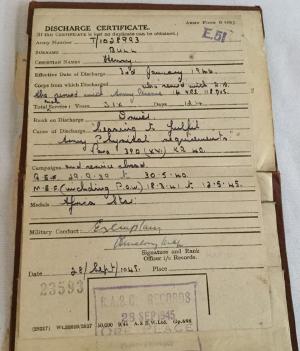 DISCHARGE CERTIFICATE.
Army Form B 108J.
(If this CERTIFICATE is lost no duplicate can be obtained.)
E.51
Army Number T/1028993
SURNAME Bull
CHRISTIAN NAMES Henry
Effective Date of Discharge 3rd January 1946.
Corps from which Discharged R.A.S.C.
Total Service: Years Six Days
Rank on Discharge Driver
Cause of Discharge "Ceasing to fulfil
Army Physical requirements"
Para 390 (XVI) K.R. 40.
Campaigns and service abroad
B.E.F. 29.9.39 to 30.5.40.
M.E.F. (including P.O.W.) 18.3.41 to 12.5.45.
Medals Africa Star
Military Conduct Exemplary
Signature and Rank
Officer i/c Records.
Date 28/Sept/1945. Place
23593
R.A.S.C. RECORDS
28 SEP 1945